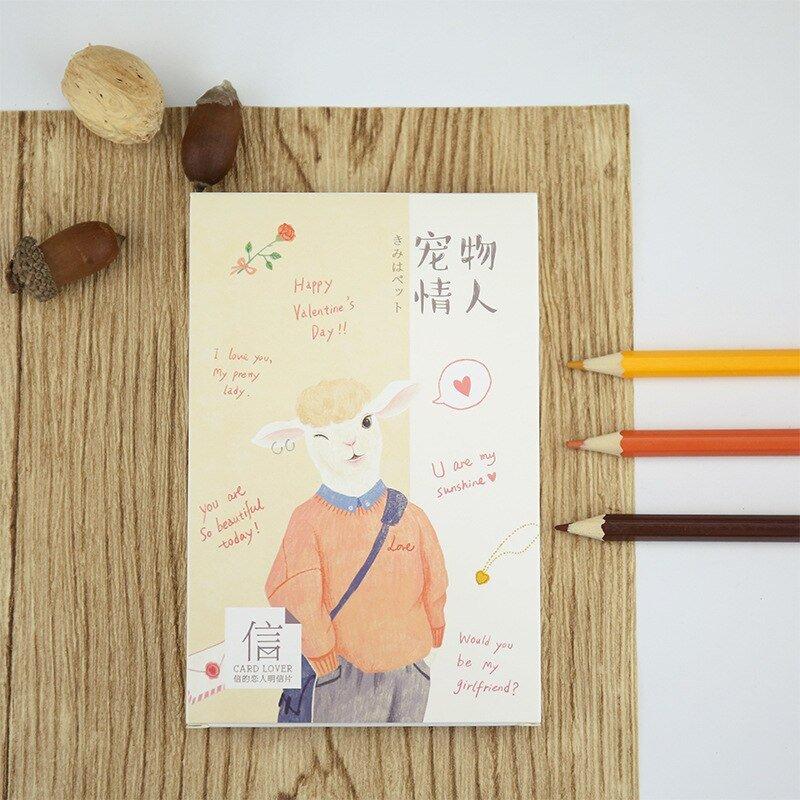 宠物
情人
きみはペット
Happy
Valentine's
Day!!
I love you,
My pretty
lady.
U are my
sunshine
You are
So beautiful
today!
Love
Would you
be my
girlfriend?
信
CARD LOVER
信的恋人明信片